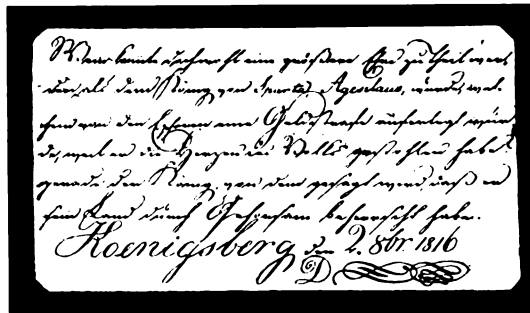 Wem konnte schwerlich eine größere Ehre zu Theil wer-
den, als dem König von Sparta Agesilaus, wurde, wel-
chem von den Ephoren eine Geldstrafe auferlegt wur-
de, weil er die Herzen des Volks gestohlen habe,
gerade der König, von dem gesagt wird, daß er
sein Land durch Gehorsam beherrscht habe.
Koenigsberg den 2. 8br. 1816